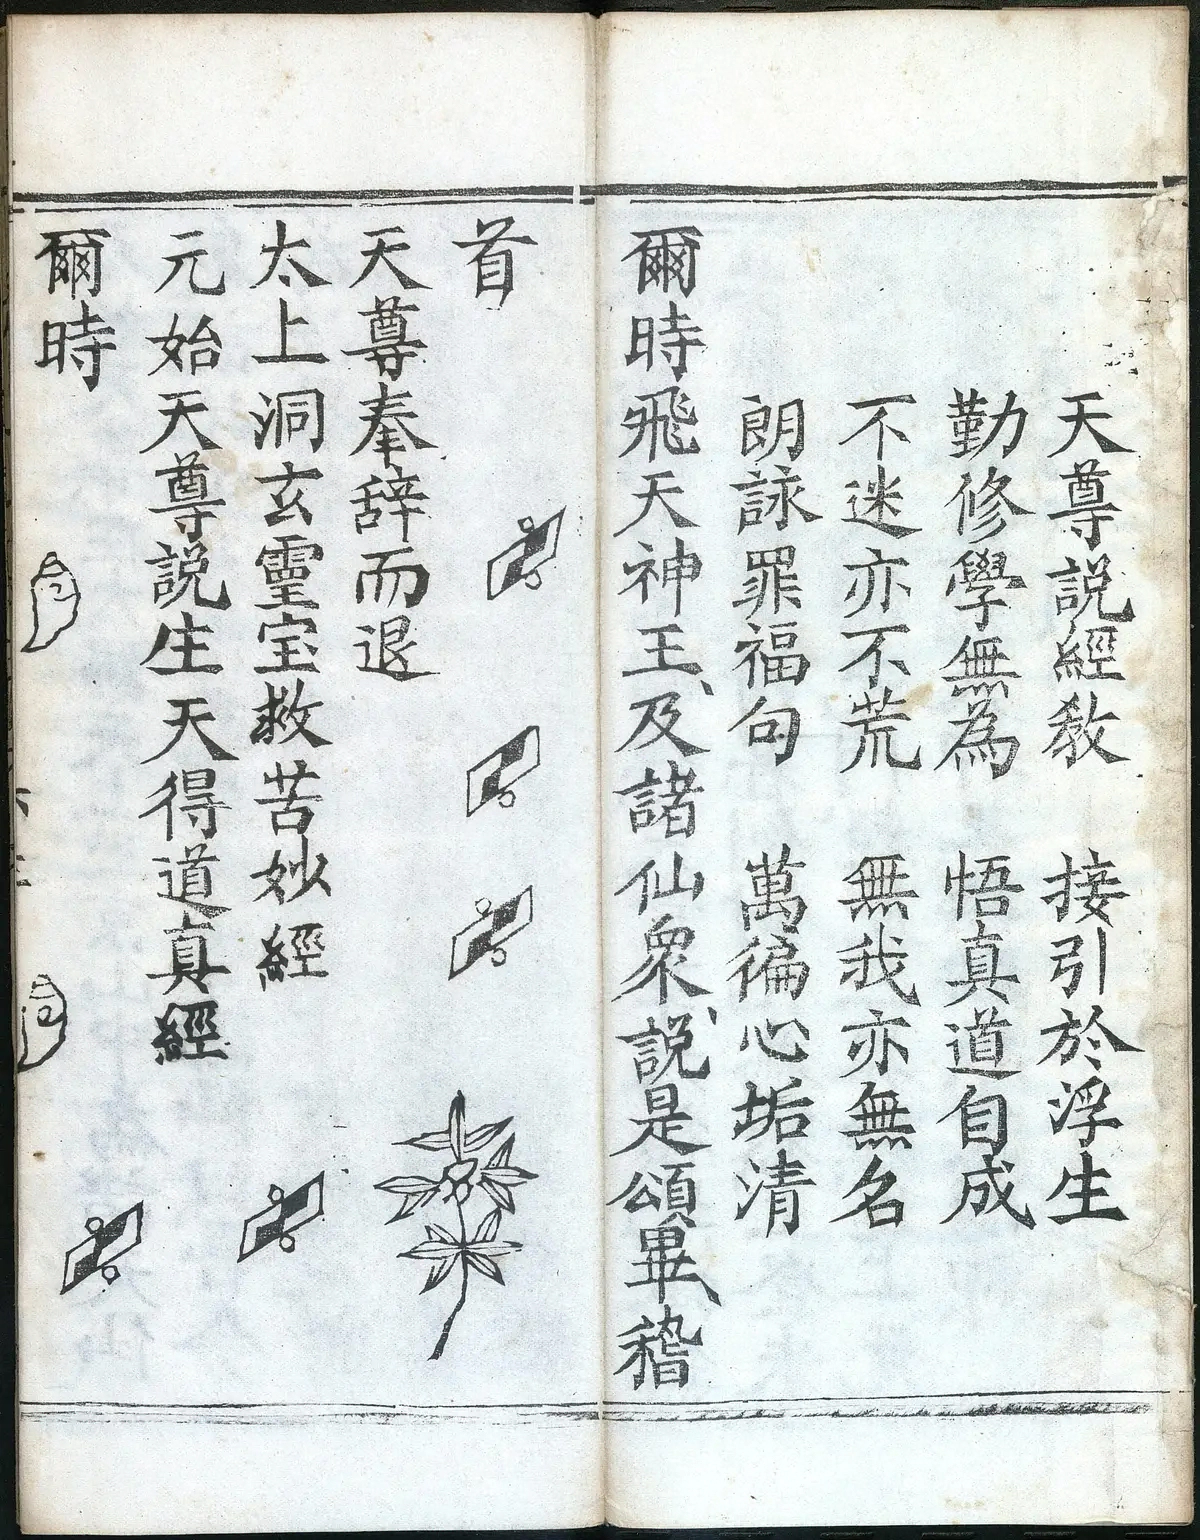 天尊説經教　接引於浮生
勤修學無為　悟真道自成
不迷亦不荒　無我亦無名
朗詠罪福句　萬徧心垢清
爾時飛天神王、及諸仙衆、説是頌畢、稽
首
天尊奉辞而退
太上洞玄靈宝救苦妙經
元始天尊説生天得道真經
爾時